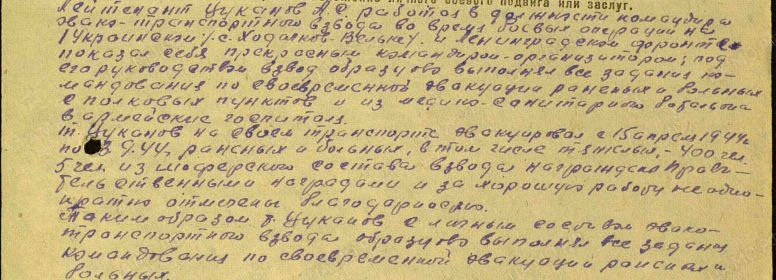 личного боевого подвига или заслуг.
Лейтенант Цуканов А.С. работая в должности командира
эвако-транспортного взвода во время боевых операций на
1 Украинском /с. Ходачкой-Вельке/ и Ленинградском фронте
показал себя прекрасным командиром-организатором; под
его руководством взвод образцово выполнял все задания ко-
мандования по своевременной эвакуации раненых и больных
с полковых пунктов и из медико-санитарного батальона
в армейские госпиталя.
т. Цуканов на своем транспорте эвакуировал с 15 апреля 1944г.
по 9.44г. раненых и больных, в том числе тяжелых, - 400 чел.
5 чел. из шоферского состава взвода награждены Прави-
тельственными наградами и за хорошую работу неодно-
кратно отмечены благодарностью.
Таким образом т. Цуканов с личным составом эвако-
транспортного взвода образцово выполнял все задания
командования по своевременной эвакуации раненых и
больных.